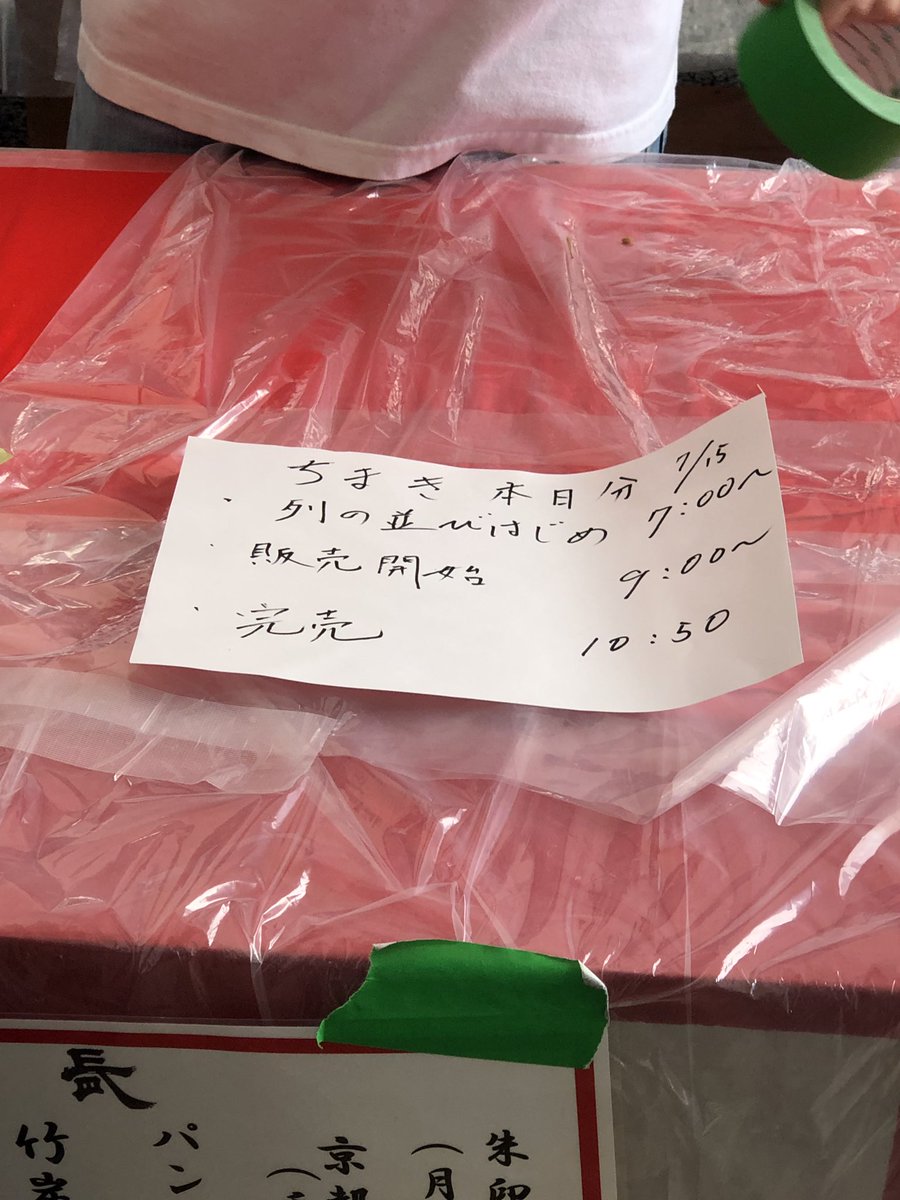 ちまき 本日分 7/15
・列の並びはじめ 7:00〜
・販売開始 9:00〜
・完売 10:50
朱印
(月
京都
パン
竹